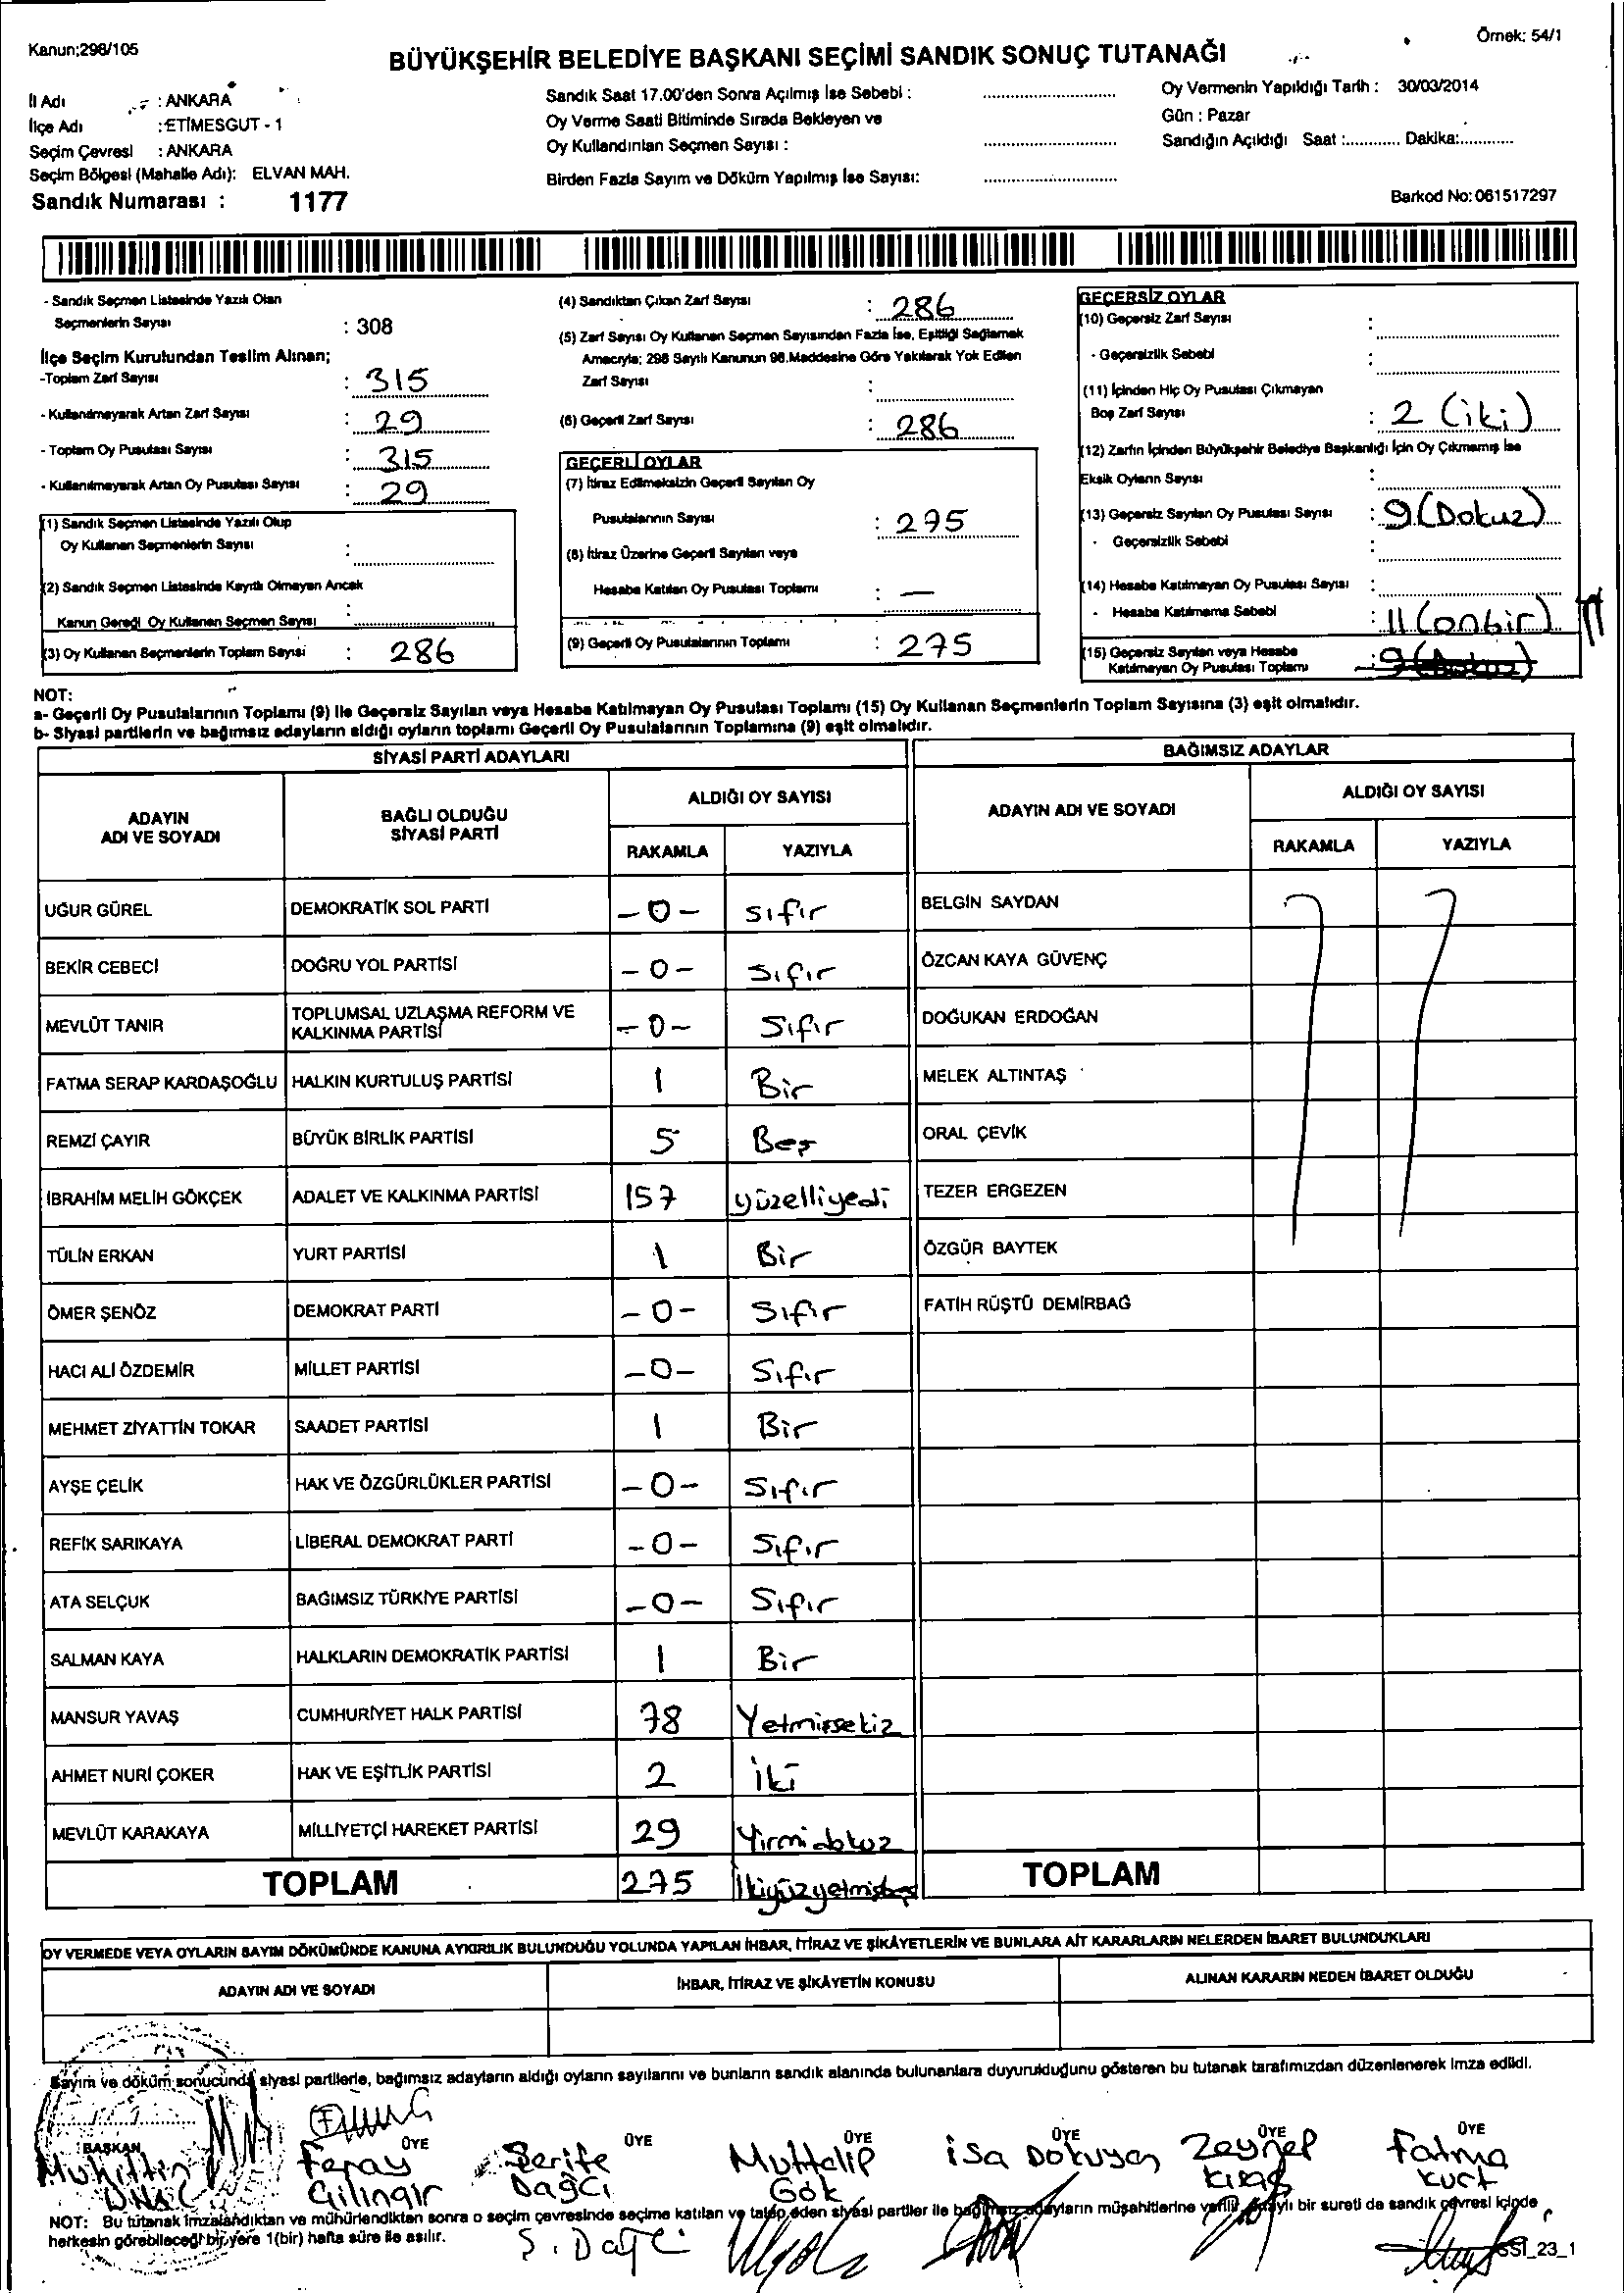 Kanun;298/105
Örnek: 54/1
BÜYÜKŞEHİR BELEDİYE BAŞKANI SEÇİMİ SANDIK SONUÇ TUTANAĞI
İl Adı : ANKARA
İlçe Adı : ETİMESGUT - 1
Seçim Çevresi : ANKARA
Seçim Bölgesi (Mahalle Adı): ELVAN MAH.
Sandık Numarası : 1177
Sandık Saat 17.00'den Sonra Açılmış İse Sebebi : ..............................
Oy Verme Saati Bitiminde Sırada Bekleyen ve
Oy Kullandırılan Seçmen Sayısı : ..............................
Birden Fazla Sayım ve Döküm Yapılmış İse Sayısı: ..............................
Oy Vermenin Yapıldığı Tarih : 30/03/2014
Gün : Pazar
Sandığın Açıldığı Saat :............ Dakika:............
Barkod No: 061517297
- Sandık Seçmen Listesinde Yazılı Olan
Seçmenlerin Sayısı : 308
İlçe Seçim Kurulundan Teslim Alınan;
-Toplam Zarf Sayısı : 315
- Kullanılmayarak Artan Zarf Sayısı : 29
- Toplam Oy Pusulası Sayısı : 315
- Kullanılmayarak Artan Oy Pusulası Sayısı : 29
(1) Sandık Seçmen Listesinde Yazılı Olup
Oy Kullanan Seçmenlerin Sayısı :
(2) Sandık Seçmen Listesinde Kayıtlı Olmayan Ancak
Kanun Gereği Oy Kullanan Seçmen Sayısı :
(3) Oy Kullanan Seçmenlerin Toplam Sayısı : 286
(4) Sandıktan Çıkan Zarf Sayısı : 286
(5) Zarf Sayısı Oy Kullanan Seçmen Sayısından Fazla İse, Eşitliği Sağlamak
Amacıyla; 298 Sayılı Kanunun 98.Maddesine Göre Yakılarak Yok Edilen
Zarf Sayısı :
(6) Geçerli Zarf Sayısı : 286
GEÇERLİ OYLAR
(7) İtiraz Edilmeksizin Geçerli Sayılan Oy
Pusulalarının Sayısı : 275
(8) İtiraz Üzerine Geçerli Sayılan veya
Hesaba Katılan Oy Pusulası Toplamı : —
(9) Geçerli Oy Pusulalarının Toplamı : 275
GEÇERSİZ OYLAR
(10) Geçersiz Zarf Sayısı :
- Geçersizlik Sebebi :
(11) İçinden Hiç Oy Pusulası Çıkmayan
Boş Zarf Sayısı : 2 (iki)
(12) Zarfın İçinden Büyükşehir Belediye Başkanlığı İçin Oy Çıkmamış İse
Eksik Oyların Sayısı :
(13) Geçersiz Sayılan Oy Pusulası Sayısı : 9 (Dokuz)
- Geçersizlik Sebebi :
(14) Hesaba Katılmayan Oy Pusulası Sayısı :
- Hesaba Katılmama Sebebi : 11 (onbir)
(15) Geçersiz Sayılan veya Hesaba
Katılmayan Oy Pusulası Toplamı 9 (Dokuz)
NOT:
a- Geçerli Oy Pusulalarının Toplamı (9) ile Geçersiz Sayılan veya Hesaba Katılmayan Oy Pusulası Toplamı (15) Oy Kullanan Seçmenlerin Toplam Sayısına (3) eşit olmalıdır.
b- Siyasi partilerin ve bağımsız adayların aldığı oyların toplamı Geçerli Oy Pusulalarının Toplamına (9) eşit olmalıdır.
SİYASİ PARTİ ADAYLARI
ADAYIN ADI VE SOYADI
BAĞLI OLDUĞU SİYASİ PARTİ
ALDIĞI OY SAYISI
RAKAMLA YAZIYLA
UĞUR GÜREL DEMOKRATİK SOL PARTİ -0- sıfır
BEKİR CEBECİ DOĞRU YOL PARTİSİ -0- Sıfır
MEVLÜT TANIR TOPLUMSAL UZLAŞMA REFORM VE KALKINMA PARTİSİ -0- Sıfır
FATMA SERAP KARDAŞOĞLU HALKIN KURTULUŞ PARTİSİ 1 Bir
REMZİ ÇAYIR BÜYÜK BİRLİK PARTİSİ 5 Beş
İBRAHİM MELİH GÖKÇEK ADALET VE KALKINMA PARTİSİ 157 yüzelliyedi
TÜLİN ERKAN YURT PARTİSİ 1 Bir
ÖMER ŞENÖZ DEMOKRAT PARTİ -0- Sıfır
HACI ALİ ÖZDEMİR MİLLET PARTİSİ -0- Sıfır
MEHMET ZİYATTİN TOKAR SAADET PARTİSİ 1 Bir
AYŞE ÇELİK HAK VE ÖZGÜRLÜKLER PARTİSİ -0- Sıfır
REFİK SARIKAYA LİBERAL DEMOKRAT PARTİ -0- Sıfır
ATA SELÇUK BAĞIMSIZ TÜRKİYE PARTİSİ -0- Sıfır
SALMAN KAYA HALKLARIN DEMOKRATİK PARTİSİ 1 Bir
MANSUR YAVAŞ CUMHURİYET HALK PARTİSİ 78 Yetmişsekiz
AHMET NURİ ÇOKER HAK VE EŞİTLİK PARTİSİ 2 iki
MEVLÜT KARAKAYA MİLLİYETÇİ HAREKET PARTİSİ 29 Yirmidokuz
TOPLAM 275 İkiyüzyetmişbeş
BAĞIMSIZ ADAYLAR
ADAYIN ADI VE SOYADI
ALDIĞI OY SAYISI
RAKAMLA YAZIYLA
BELGİN SAYDAN
ÖZCAN KAYA GÜVENÇ
DOĞUKAN ERDOĞAN
MELEK ALTINTAŞ
ORAL ÇEVİK
TEZER ERGEZEN
ÖZGÜR BAYTEK
FATİH RÜŞTÜ DEMİRBAĞ
TOPLAM
OY VERMEDE VEYA OYLARIN SAYIM DÖKÜMÜNDE KANUNA AYKIRILIK BULUNDUĞU YOLUNDA YAPILAN İHBAR, İTİRAZ VE ŞİKÂYETLERİN VE BUNLARA AİT KARARLARIN NELERDEN İBARET BULUNDUKLARI
ADAYIN ADI VE SOYADI
İHBAR, İTİRAZ VE ŞİKÂYETİN KONUSU
ALINAN KARARIN NEDEN İBARET OLDUĞU
Sayım ve döküm sonucunda siyasi partilerle, bağımsız adayların aldığı oyların sayılarını ve bunların sandık alanında bulunanlara duyurulduğunu gösteren bu tutanak tarafımızdan düzenlenerek imza edildi.
BAŞKAN ÜYE ÜYE ÜYE ÜYE ÜYE ÜYE
Muhittin Feray Şerife Muttalip isa Dokuyan Zeynep Fatma
Çilingir Dağcı Gök Kıraç Kurt
NOT: Bu tutanak imzalandıktan ve mühürlendikten sonra o seçim çevresinde seçime katılan ve talep eden siyasi partiler ile bağımsız adayların müşahitlerine verilir, onaylı bir sureti de sandık çevresi içinde
herkesin görebileceği bir yere 1(bir) hafta süre ile asılır.
S. Dağcı
SSI_23_1